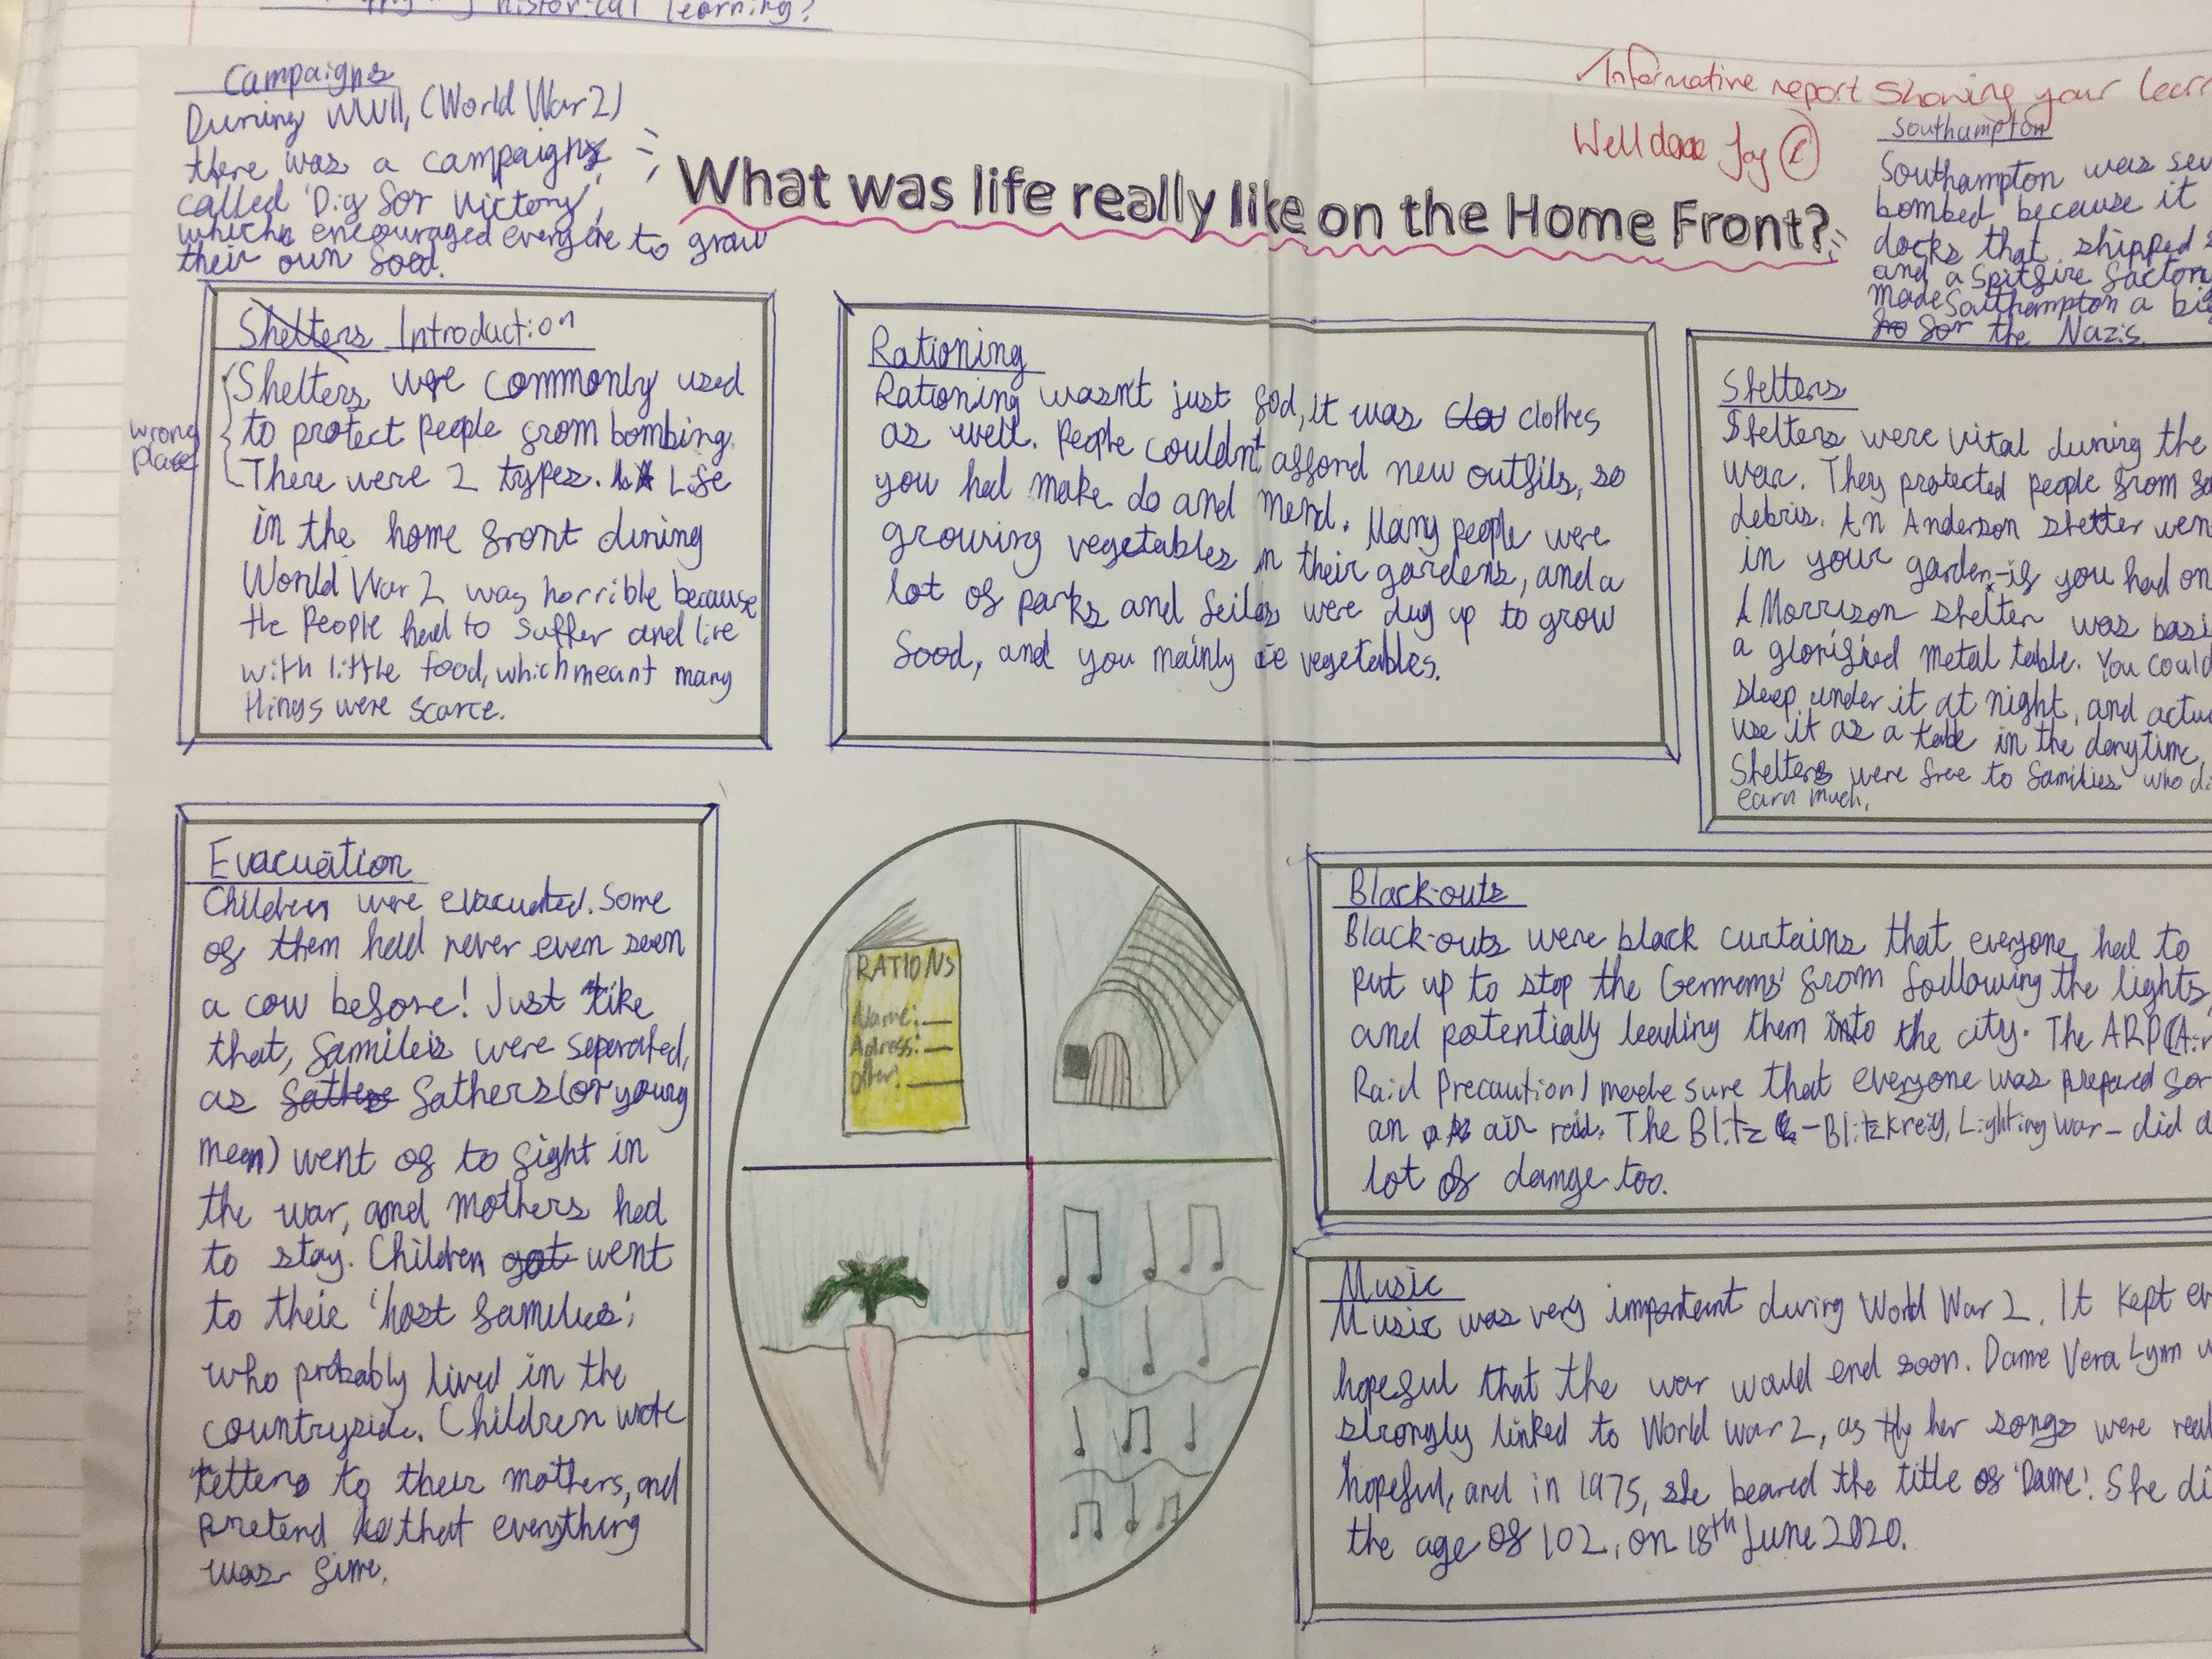 historical learning?
Campaigns
During WWII, (World War 2)
there was a campaign
called 'Dig for Victory',
which encouraged everyone to grow
their own food.
What was life really like on the Home Front?
✓Informative report showing your lear
Well done Joy
Southampton
Southampton was sev
bombed because it
docks that shipped s
and a Spitfire factor
made Southampton a bi
for the Nazis.
Shelters Introduction
wrong
place
Shelters were commonly used
to protect people from bombing.
There were 2 types. Life
in the home front during
World War 2 was horrible because
the people had to suffer and live
with little food, which meant many
things were scarce.
Rationing
Rationing wasn't just food, it was clothes
as well. People couldn't afford new outfits, so
you had make do and mend. Many people were
growing vegetables in their gardens, and a
lot of parks and feilds were dug up to grow
food, and you mainly vegetables.
Shelters
Shelters were vital during the
war. They protected people from
debris. An Anderson shelter wen
in your garden-if you had on
A Morrison shelter was basi
a glorified metal table. You could
sleep under it at night, and actu
use it as a table in the daytime,
Shelters were free to families who di
earn much.
Evacuation
Children were evacuated. Some
of them had never even seen
a cow before! Just like
that, famileis were seperated,
as fathers (or young
men) went of to fight in
the war, and mothers had
to stay. Children got went
to their 'host families',
who probably lived in the
countryside. Children wrote
letters to their mothers, and
pretend that everything
was fine.
RATIONS
Name:
Adress:
Other:
Black-outs
Black-outs were black curtains that everyone had to
put up to stop the Germans' from following the lights,
and potentially leading them into the city. The ARP (Air
Raid Precaution) made sure that everyone was prepared for
an air raid. The Blitz -Blitzkreig, Lighting War- did a
lot of damge too.
Music
Music was very important during World War 2. It kept ev
hopeful that the war would end soon. Dame Vera Lynn w
strongly linked to World War 2, as her songs were real
hopeful, and in 1975, she beared the title of 'Dame'. She di
the age of 102, on 18th June 2020.